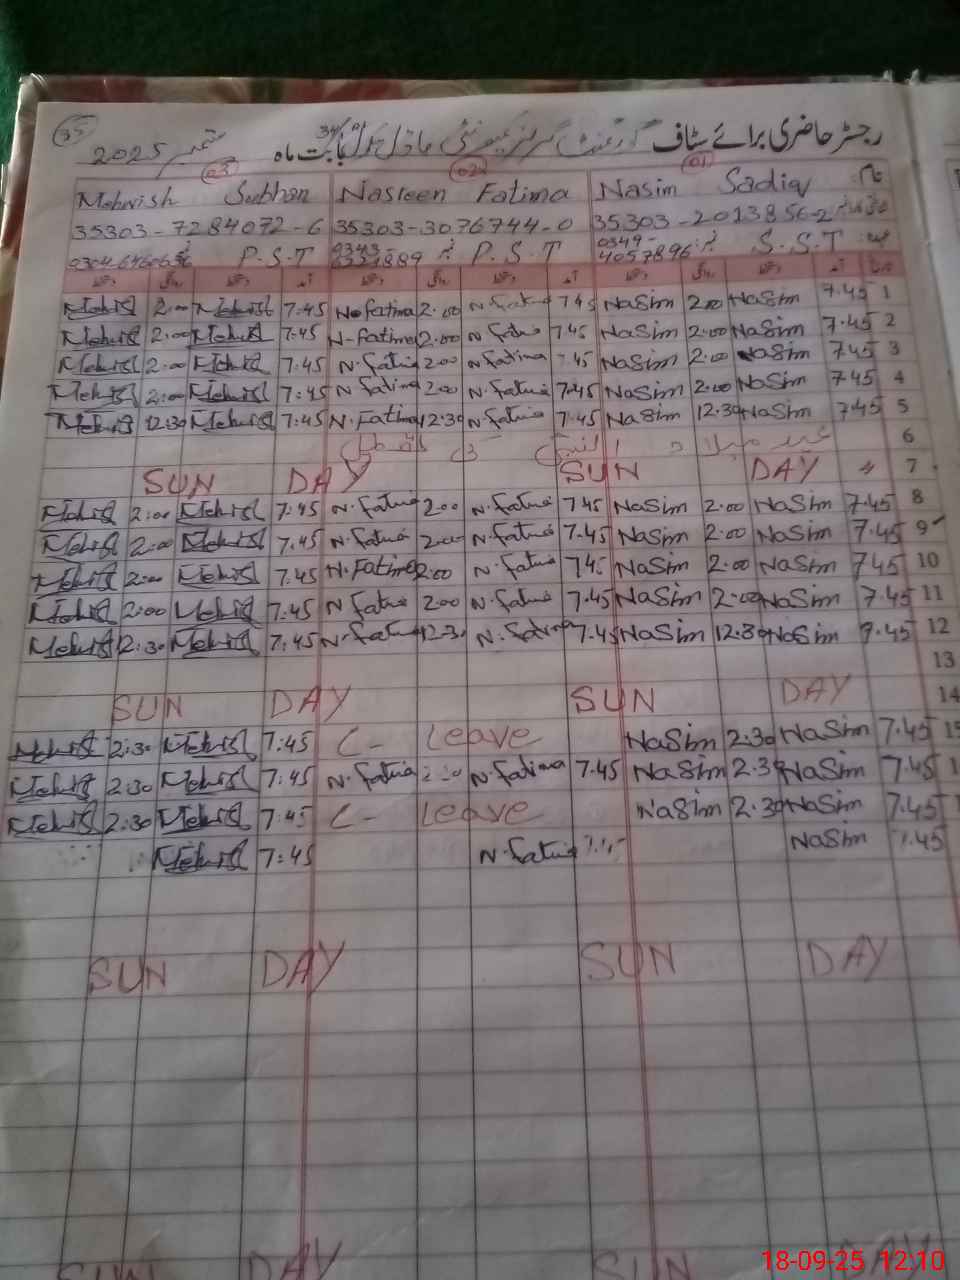 رجسٹر حاضری برائے سٹاف گورنمنٹ گرلز کمیونٹی ماڈل سکول بابت ماہ ستمبر 2025
35
01 02 03
نام Nasim Sadiq Nasreen Fatima Mehwish Subhan
35303-2013856-2 35303-3076744-0 35303-7284072-6
عہدہ S.S.T نمبر 0349-4057896 P.S.T نمبر P.S.T نمبر
1 7.45 NaSim 2.00 NaSim 7.45 N.Fatima 2.00 N.Fatima 7:45 Mehwish 2:00 Mehwish
2 7.45 NaSim 2.00 NaSim 7.45 N.Fatima 2.00 N.Fatima 7:45 Mehwish 2:00 Mehwish
3 7.45 NaSim 2.00 NaSim 7.45 N.Fatima 2.00 N.Fatima 7:45 Mehwish 2:00 Mehwish
4 7.45 NaSim 2.00 NaSim 7.45 N.Fatima 2.00 N.Fatima 7:45 Mehwish 2:00 Mehwish
5 7.45 NaSim 12.30 NaSim 7.45 N.Fatima 12.30 N.Fatima 7:45 Mehwish 12:30 Mehwish
6 عید میلاد النبیؐ کی تعطیل
7 SUN DAY SUN DAY
8 7.45 NaSim 2.00 NaSim 7.45 N.Fatima 2.00 N.Fatima 7:45 Mehwish 2:00 Mehwish
9 7.45 NaSim 2.00 NaSim 7.45 N.Fatima 2.00 N.Fatima 7:45 Mehwish 2:00 Mehwish
10 7.45 NaSim 2.00 NaSim 7.45 N.Fatima 2.00 N.Fatima 7:45 Mehwish 2:00 Mehwish
11 7.45 NaSim 2.00 NaSim 7.45 N.Fatima 2.00 N.Fatima 7:45 Mehwish 2:00 Mehwish
12 7.45 NaSim 12.30 NaSim 7.45 N.Fatima 12.30 N.Fatima 7:45 Mehwish 12:30 Mehwish
13
14 SUN DAY SUN DAY
15 7.45 NaSim 2.30 NaSim C- Leave 7:45 Mehwish 2:30 Mehwish
7.45 NaSim 2.30 NaSim 7.45 N.Fatima 2:30 N.Fatima 7:45 Mehwish 2:30 Mehwish
7.45 NaSim 2.30 NaSim C- Leave 7:45 Mehwish 2:30 Mehwish
7.45 NaSim N.Fatima 7:45 Mehwish
SUN DAY SUN DAY
SUN DAY SUN DAY
18-09-25 12:10